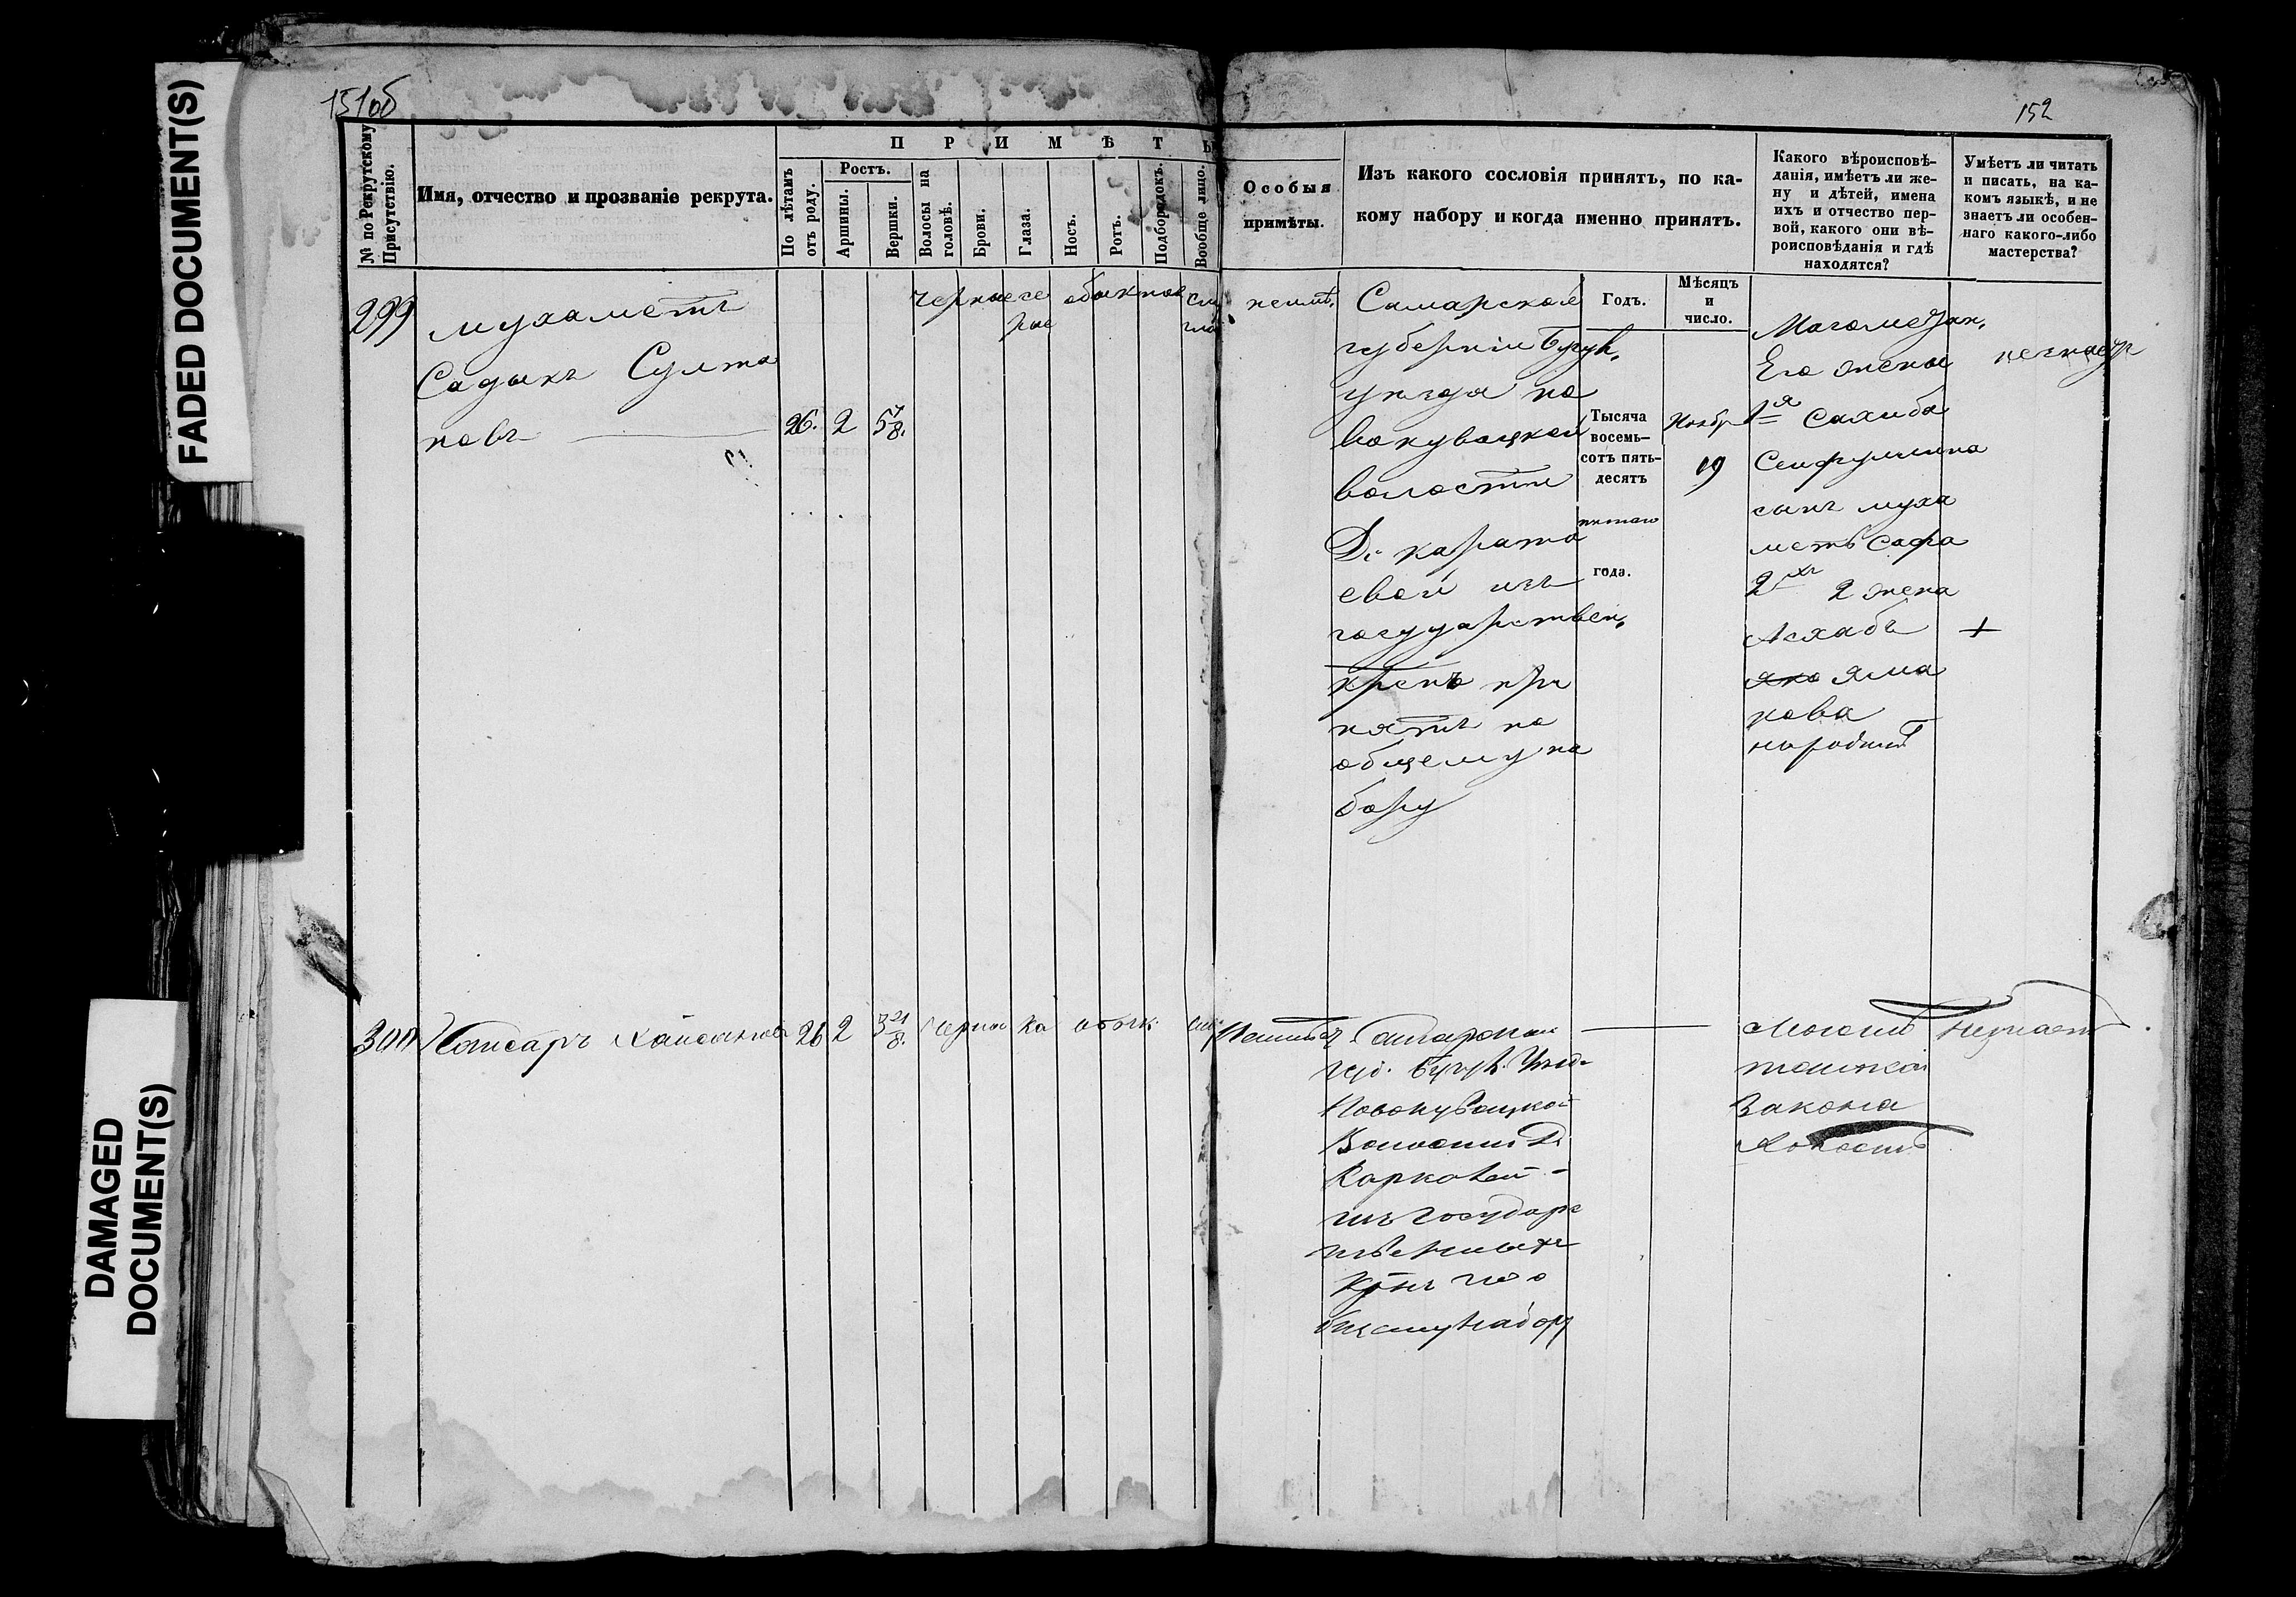 FADED DOCUMENT(S)
DAMAGED
DOCUMENT(S)
151об
152
№ по Рекрутскому
Присутствію.
Имя, отчество и прозваніе рекрута.
ПРИМѢТЫ
По лѣтамъ
отъ роду.
Ростъ.
Аршины.
Вершки.
Волосы на
головѣ.
Брови.
Глаза.
Носъ.
Ротъ.
Подбородокъ.
Вообще лицо.
Особыя
примѣты.
Изъ какого сословія принятъ, по ка-
кому набору и когда именно принятъ.
Какого вѣроисповѣ-
данія, имѣетъ ли же-
ну и дѣтей, имена
ихъ и отчество пер-
вой, какого они вѣ-
роисповѣданія и гдѣ
находятся?
Умѣетъ ли читать
и писать, на ка-
комъ языкѣ, и не
знаетъ ли особен-
наго какого-либо
мастерства?
299
мухаметъ
Садыкъ Султа
новъ
26. 2 5 7/8.
черные се
рые
обыкнов
сму
гло
неимѣ.
Самарской
губерніи Бугул.
уезда но
вокувацкой
волости
Д. Карата
евой изъ
государствен.
крен при
нятъ по
общему на
бору
Годъ.
Тысяча
восемь-
сотъ пять-
десятъ
пятаго
года.
Мѣсяцъ
и
число.
Ноябр
19
Магомедан.
Его жены
1я Сахиба
Сейфулина
сынъ муха
метъ Сафа
2 жена
Асхабъ
Яма
кова
незнает
+
300
Хайсанова
26 2 3
Черны Ка обык.
Самарской
губ. Бугул. Уезд.
Новокувацкой
Волости Д.
Карковой
изъ Государс
твенныхъ
по о
бщему набору
Закона
Холостъ
Незнаетъ